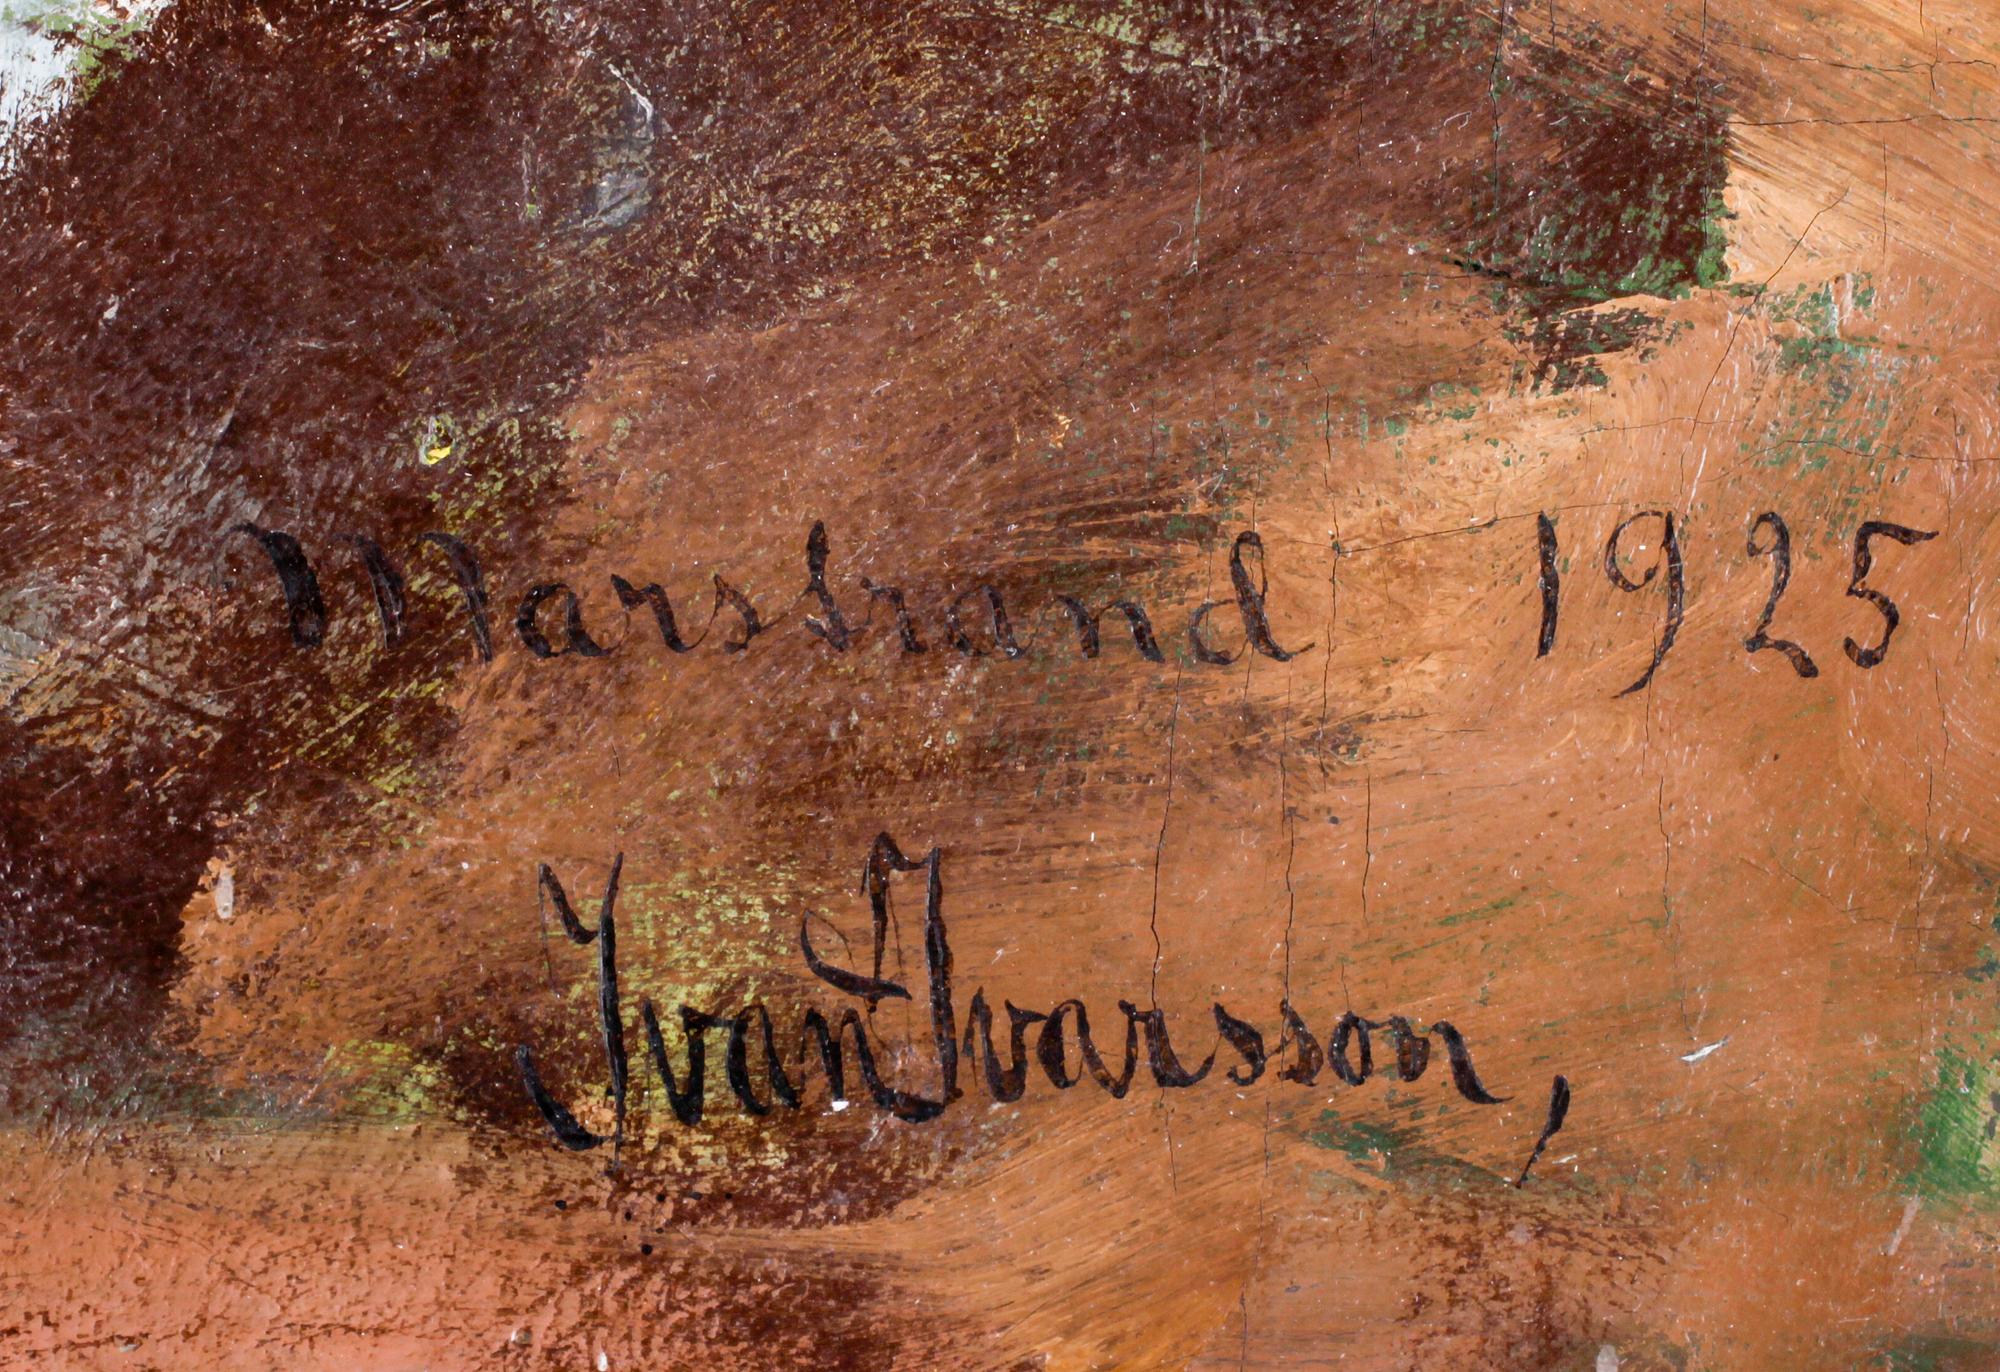 Marstrand 1925
Ivan Ivarsson,